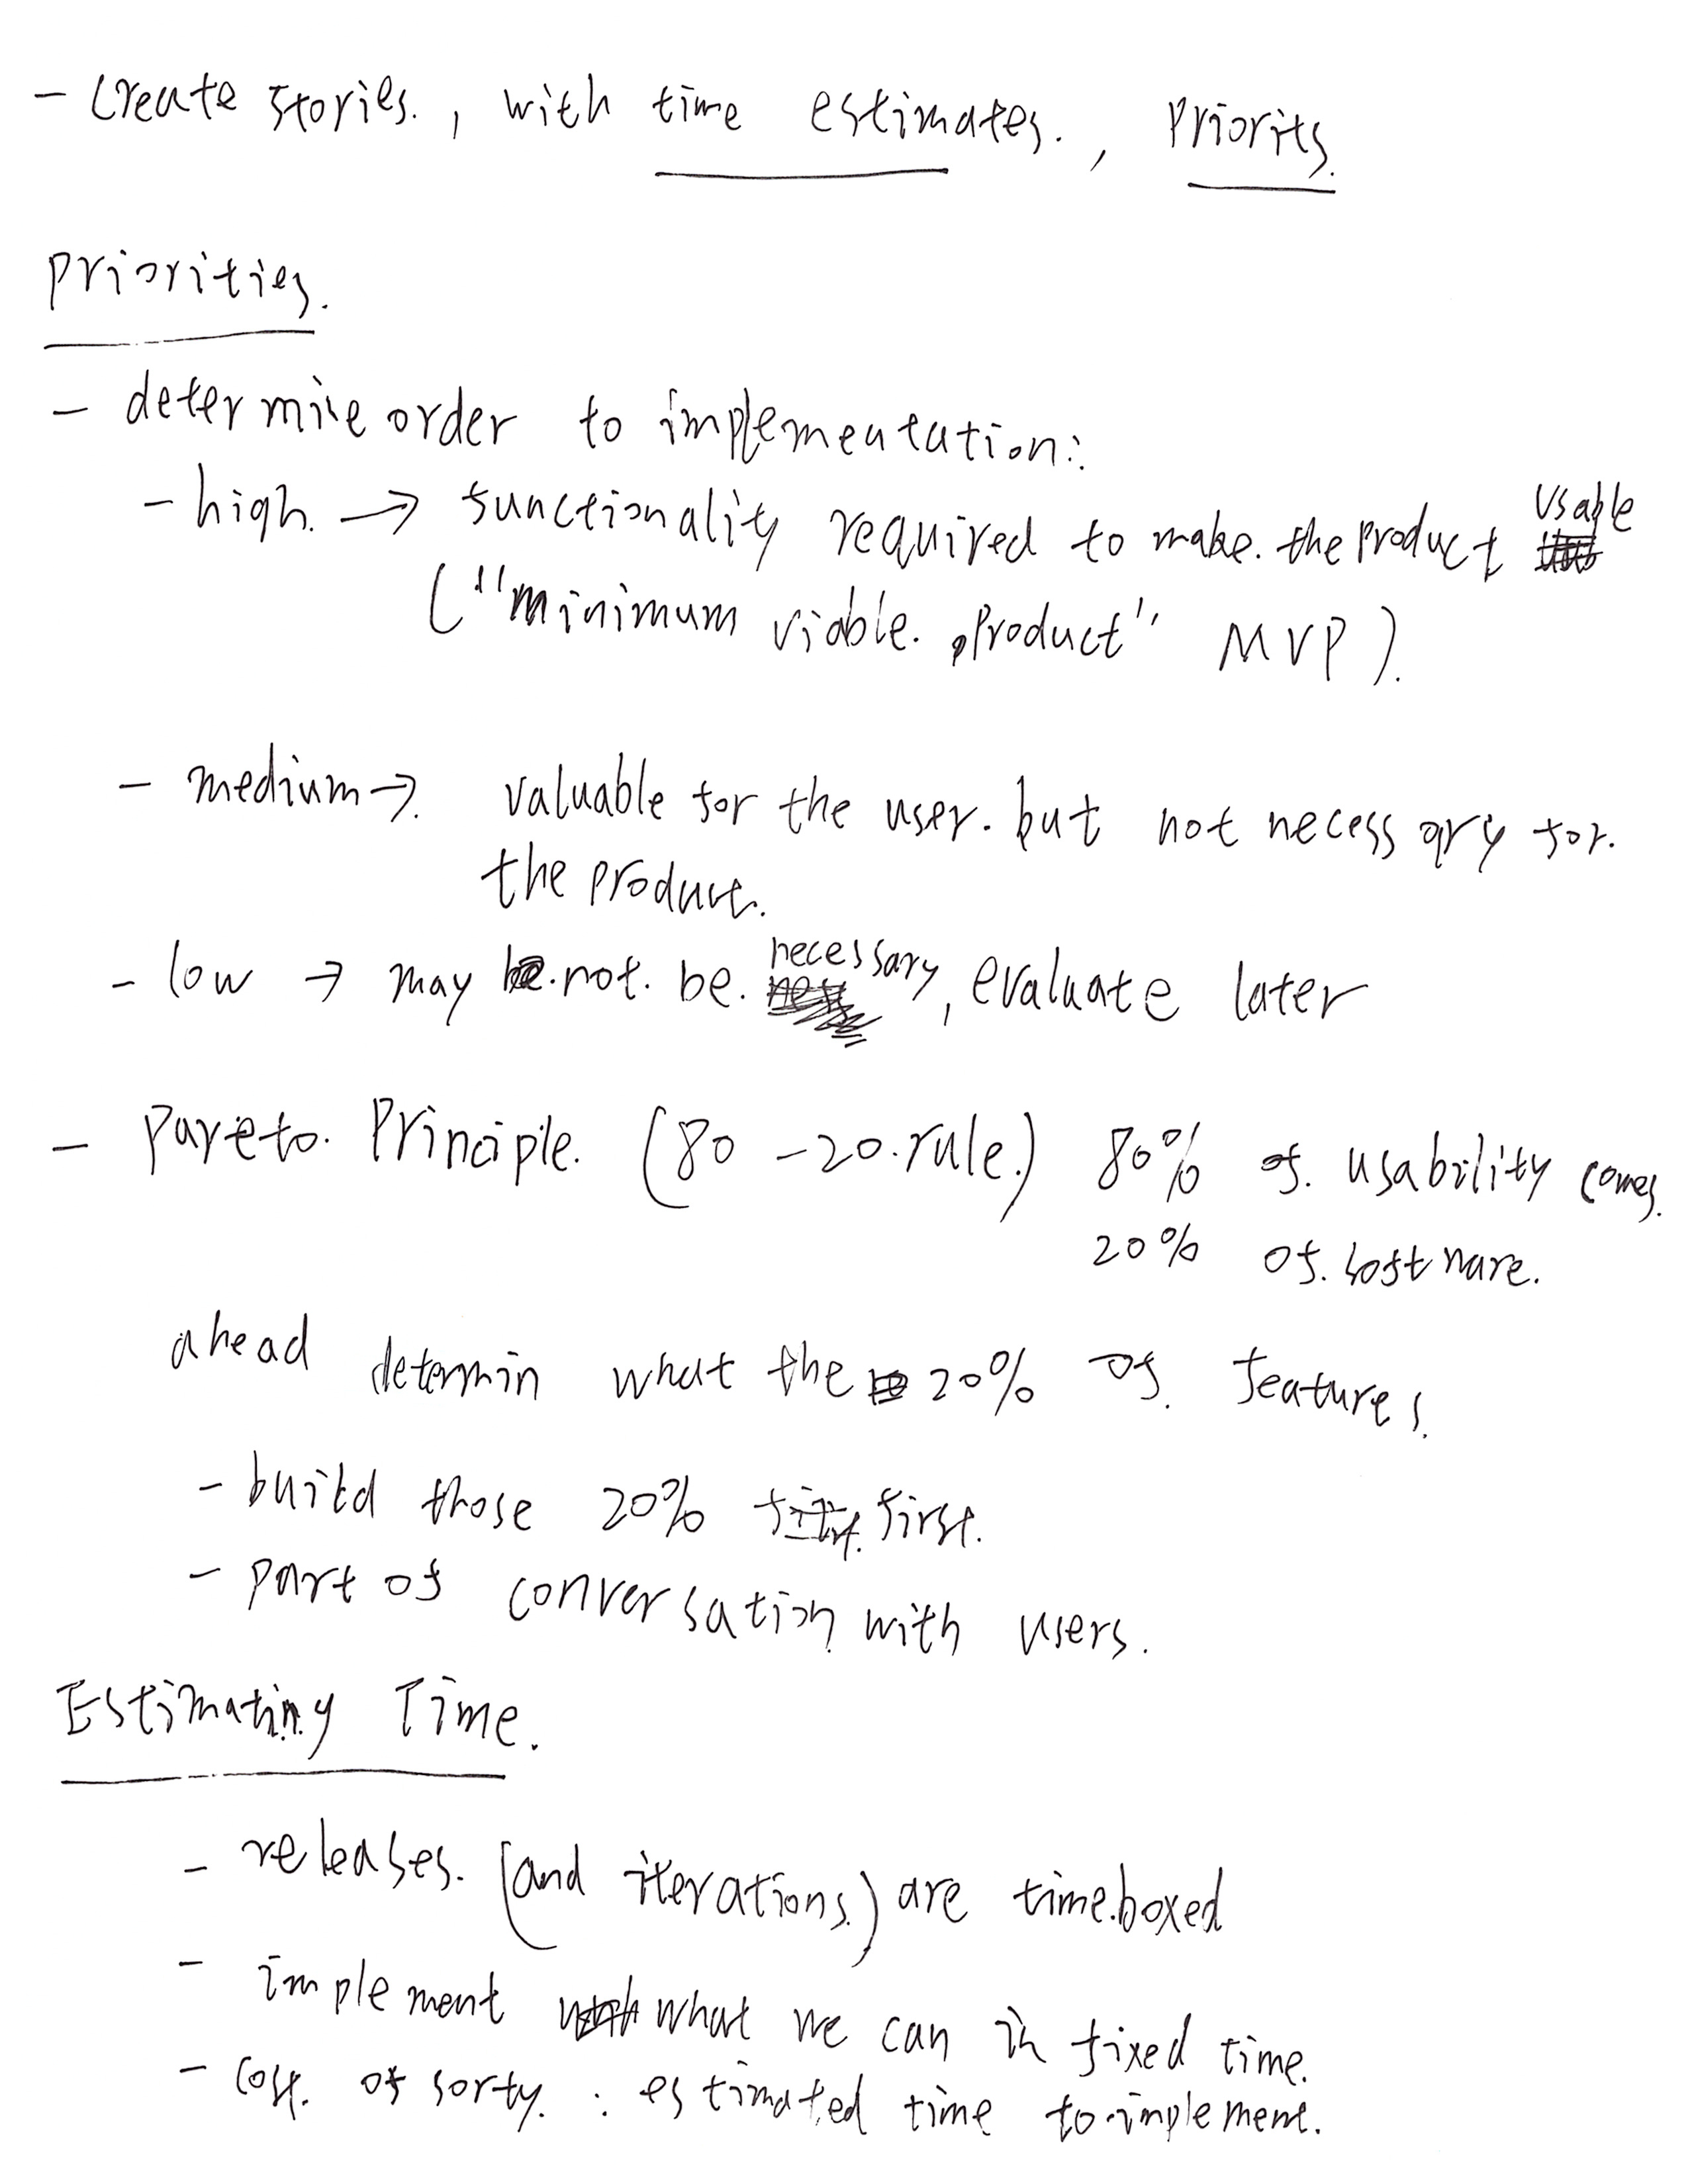 - Create stories. , with time estimates. , Priority.
Priorities.
- determine order to implementation:
- high. → functionality required to make. the product usable
("minimum viable. product" MVP).
- medium →. valuable for the user. but not necessary for.
the product.
- low → may not. be. necessary, evaluate later
- Pareto. Principle. (80 - 20. rule.) 80% of. usability comes.
20% of. software.
ahead determin what the 20% of. features.
- build those 20% first.
- part of conversation with users.
Estimating Time.
- releases. (and iterations.) are time.boxed
- implement what we can in fixed time.
- Cost. of sorty. : estimated time to implement.